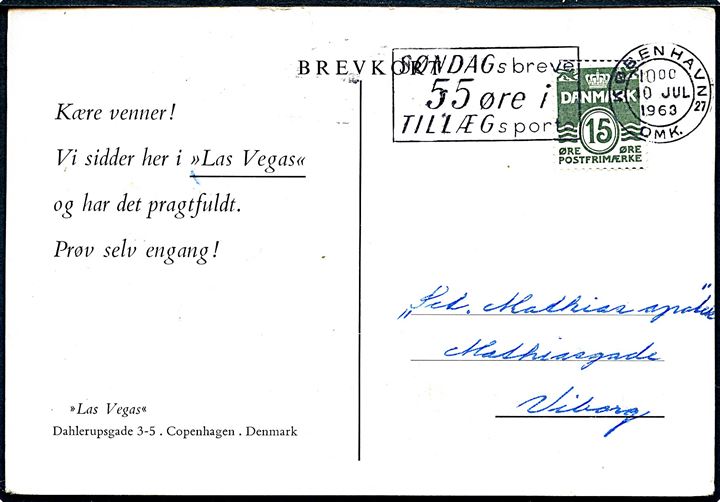 BREVKORT
SØNDAGsbreve
55 øre i
TILLÆGsporto
KØBENHAVN
1000
10 JUL
1963
27
OMK.
DANMARK
15
ØRE ØRE
POSTFRIMÆRKE
Kære venner!
Vi sidder her i »Las Vegas«
og har det pragtfuldt.
Prøv selv engang!
„Sct. Mathias apotek"
Mathiasgade
Viborg
»Las Vegas«
Dahlerupsgade 3-5 . Copenhagen . Denmark